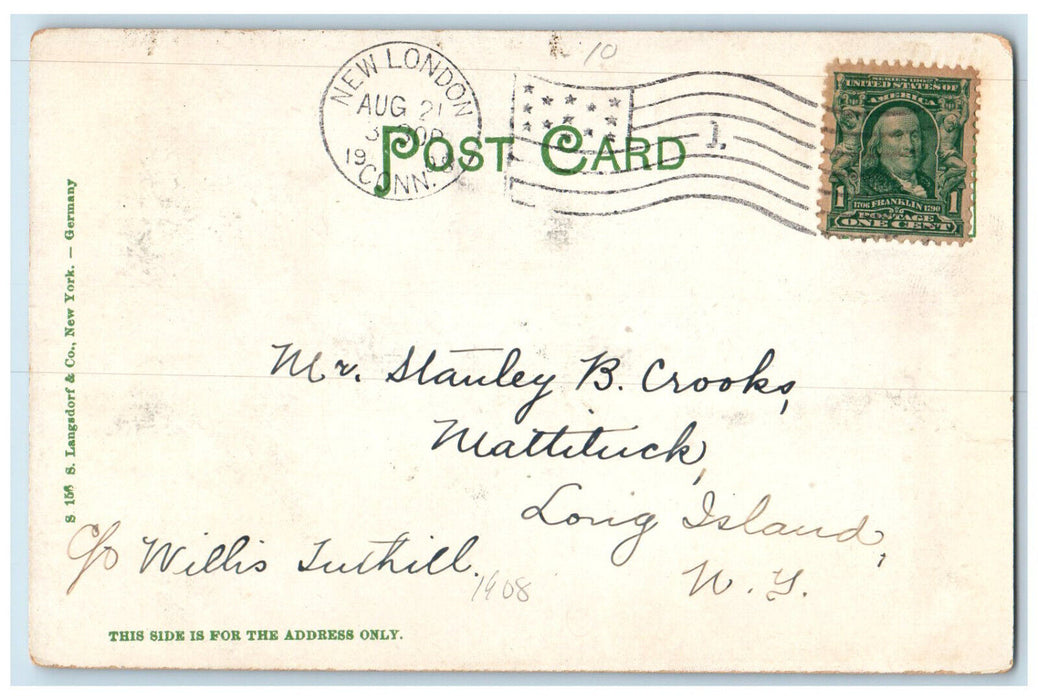 10
NEW LONDON
AUG 21
19
CONN.
1
POST CARD
SERIES 1902
UNITED STATES OF
AMERICA
1 1
1706 FRANKLIN 1790
POSTAGE
ONE CENT
S. Langsdorf & Co., New York. — Germany
Mr. Stanley B. Crooks,
Mattituck,
Long Island,
N. Y.
c/o Willis Tuthill.
1908
THIS SIDE IS FOR THE ADDRESS ONLY.